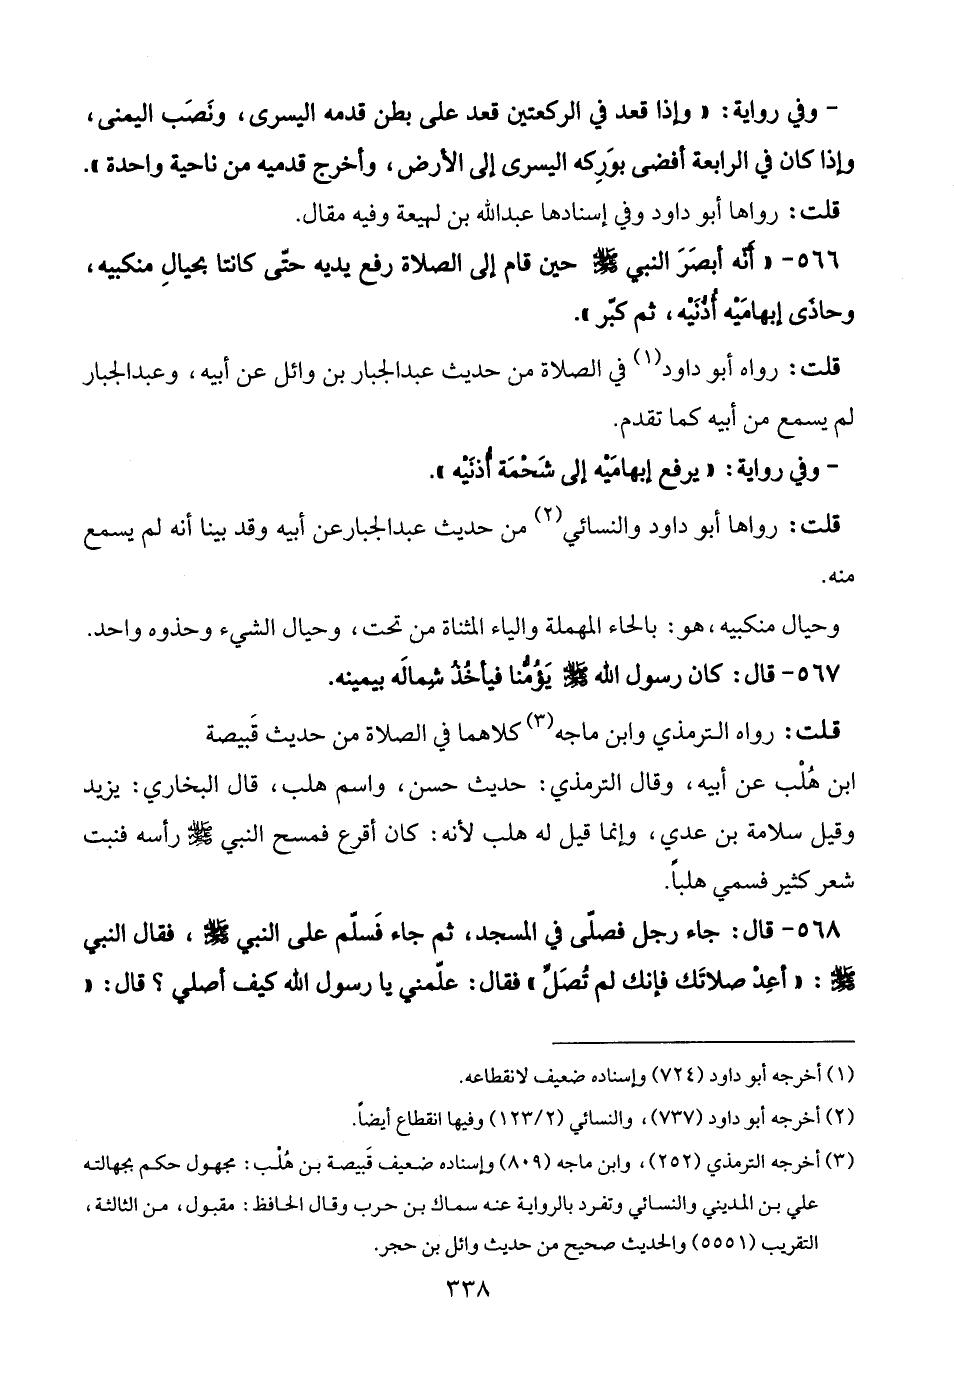 - وفي رواية: « وإذا قعد في الركعتين قعد على بطن قدمه اليسرى، ونَصَب اليمنى،
وإذا كان في الرابعة أفضى بوَرِكه اليسرى إلى الأرض، وأخرج قدميه من ناحية واحدة ».
قلت: رواها أبو داود وفي إسنادها عبدالله بن لهيعة وفيه مقال.
٥٦٦- « أنّه أبصَرَ النبي ﷺ حين قام إلى الصلاة رفع يديه حتّى كانتا بحيالِ منكبيه،
وحاذَى إبهامَيْه أُذُنَيْه، ثم كبّر ».
قلت: رواه أبو داود(١) في الصلاة من حديث عبدالجبار بن وائل عن أبيه، وعبدالجبار
لم يسمع من أبيه كما تقدم.
- وفي رواية: « يرفع إبهامَيْه إلى شَحْمَة أُذنَيْه ».
قلت: رواها أبو داود والنسائي(٢) من حديث عبدالجبارعن أبيه وقد بينا أنه لم يسمع
منه.
وحيال منكبيه، هو: بالحاء المهملة والياء المثناة من تحت، وحيال الشيء وحذوه واحد.
٥٦٧- قال: كان رسول الله ﷺ يَؤُمُّنا فيأخُذُ شِمالَه بيمينه.
قلت: رواه الترمذي وابن ماجه(٣) كلاهما في الصلاة من حديث قَبيصة
ابن هُلْب عن أبيه، وقال الترمذي: حديث حسن، واسم هلب، قال البخاري: يزيد
وقيل سلامة بن عدي، وإنما قيل له هلب لأنه: كان أقرع فمسح النبي ﷺ رأسه فنبت
شعر كثير فسمي هلباً.
٥٦٨- قال: جاء رجل فصلّى في المسجد، ثم جاء فَسلّم على النبي ﷺ ، فقال النبي
ﷺ : « أعِدْ صلاتَك فإنك لم تُصَلِّ » فقال: علّمني يا رسول الله كيف أصلي ؟ قال: «
(١) أخرجه أبو داود (٧٢٤) وإسناده ضعيف لانقطاعه.
(٢) أخرجه أبو داود (٧٣٧)، والنسائي (١٢٣/٢) وفيها انقطاع أيضاً.
(٣) أخرجه الترمذي (٢٥٢)، وابن ماجه (٨٠٩) وإسناده ضعيف قَبيصة بن هُلْب: مجهول حكم بجهالته
علي بن المديني والنسائي وتفرد بالرواية عنه سماك بن حرب وقال الحافظ: مقبول، من الثالثة،
التقريب (٥٥٥١) والحديث صحيح من حديث وائل بن حجر.
٣٣٨